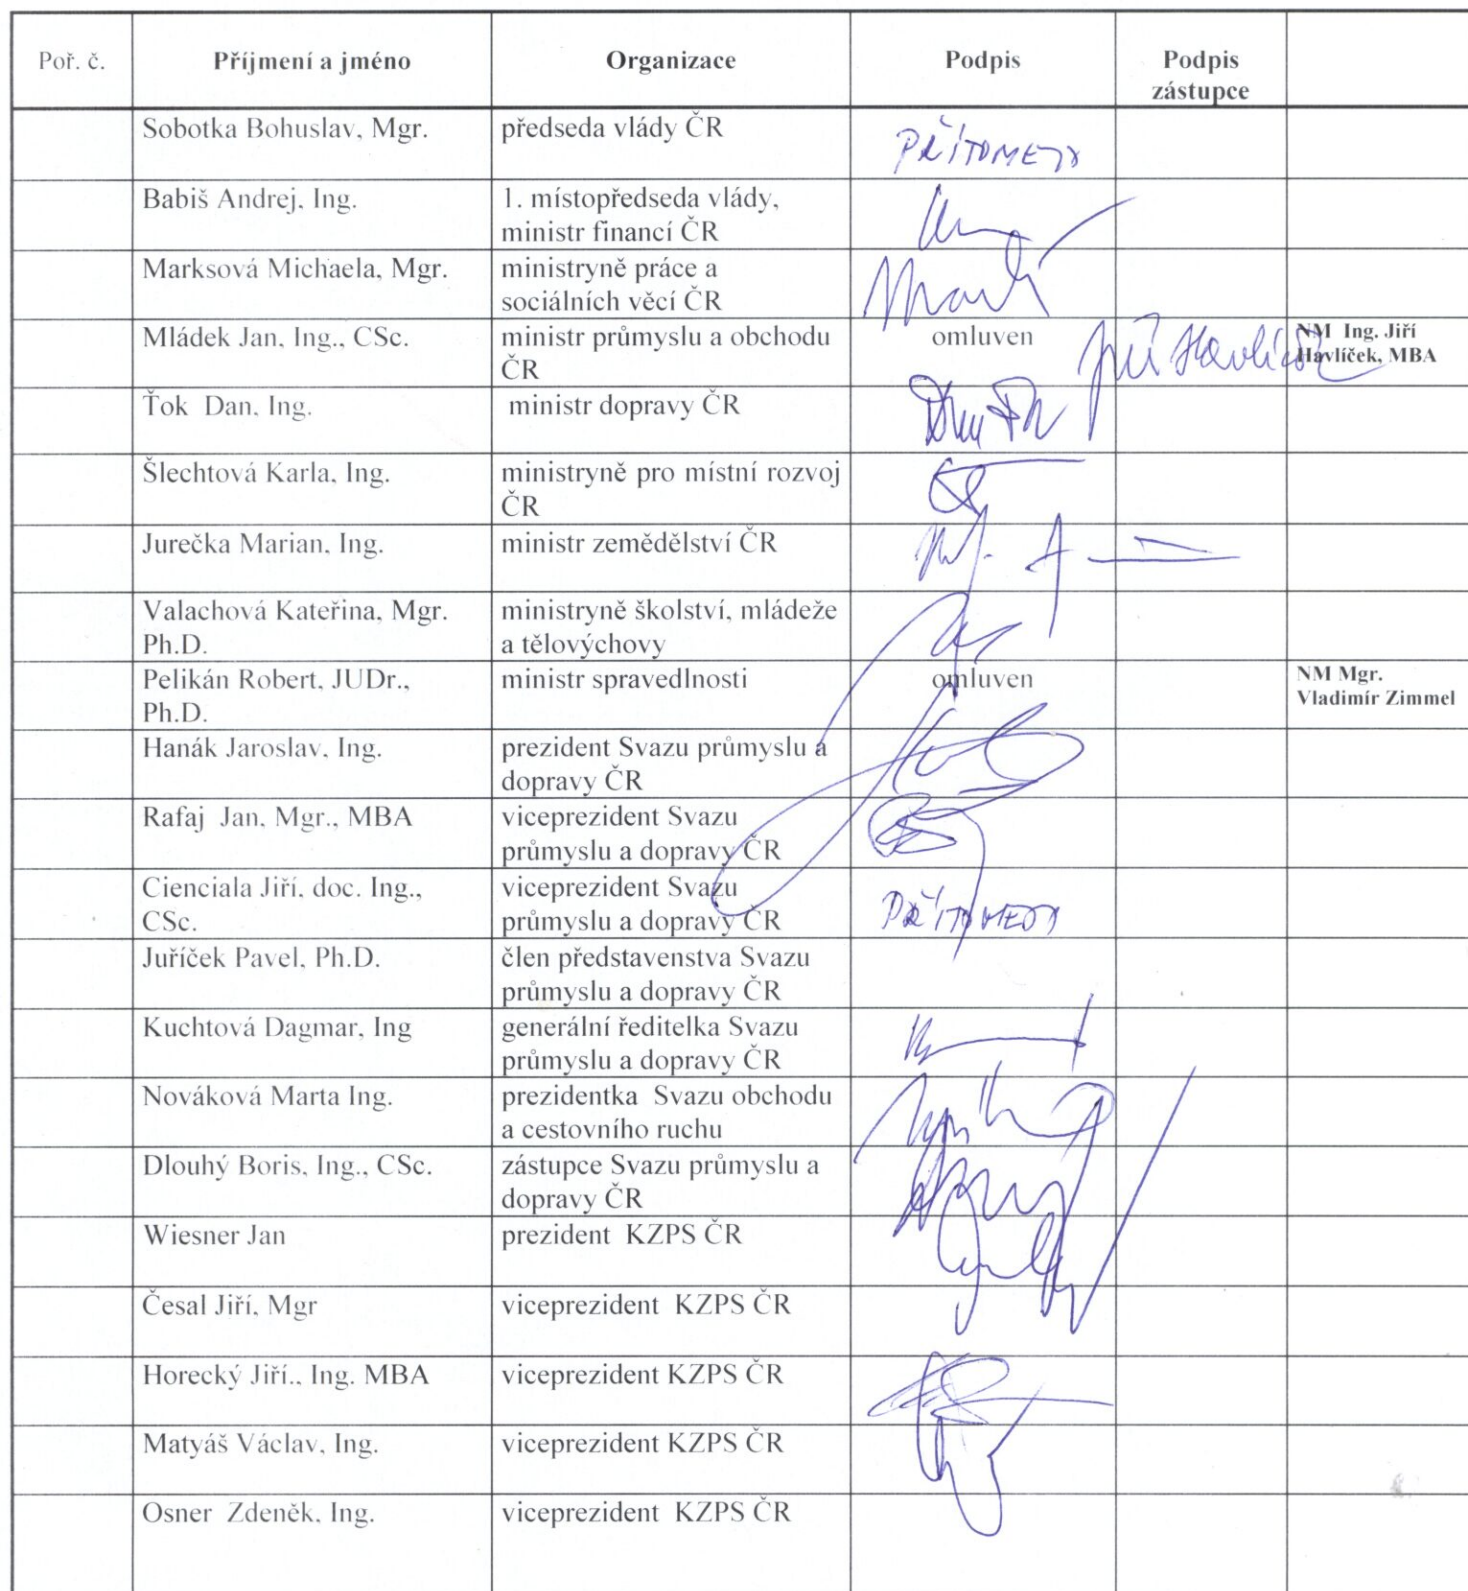 Poř. č. Příjmení a jméno Organizace Podpis Podpis
zástupce
Sobotka Bohuslav, Mgr. předseda vlády ČR PŘÍTOMEN
Babiš Andrej, Ing. 1. místopředseda vlády,
ministr financí ČR
Marksová Michaela, Mgr. ministryně práce a
sociálních věcí ČR
Mládek Jan, Ing., CSc. ministr průmyslu a obchodu omluven Jiří Havlíček NM Ing. Jiří
ČR Havlíček, MBA
Ťok Dan, Ing. ministr dopravy ČR
Šlechtová Karla, Ing. ministryně pro místní rozvoj
ČR
Jurečka Marian, Ing. ministr zemědělství ČR
Valachová Kateřina, Mgr. ministryně školství, mládeže
Ph.D. a tělovýchovy
Pelikán Robert, JUDr., ministr spravedlnosti omluven NM Mgr.
Ph.D. Vladimír Zimmel
Hanák Jaroslav, Ing. prezident Svazu průmyslu a
dopravy ČR
Rafaj Jan, Mgr., MBA viceprezident Svazu
průmyslu a dopravy ČR
Cienciala Jiří, doc. Ing., viceprezident Svazu
CSc. průmyslu a dopravy ČR PŘÍTOMEN
Juříček Pavel, Ph.D. člen představenstva Svazu
průmyslu a dopravy ČR
Kuchtová Dagmar, Ing generální ředitelka Svazu
průmyslu a dopravy ČR
Nováková Marta Ing. prezidentka Svazu obchodu
a cestovního ruchu
Dlouhý Boris, Ing., CSc. zástupce Svazu průmyslu a
dopravy ČR
Wiesner Jan prezident KZPS ČR
Česal Jiří, Mgr viceprezident KZPS ČR
Horecký Jiří., Ing. MBA viceprezident KZPS ČR
Matyáš Václav, Ing. viceprezident KZPS ČR
Osner Zdeněk, Ing. viceprezident KZPS ČR